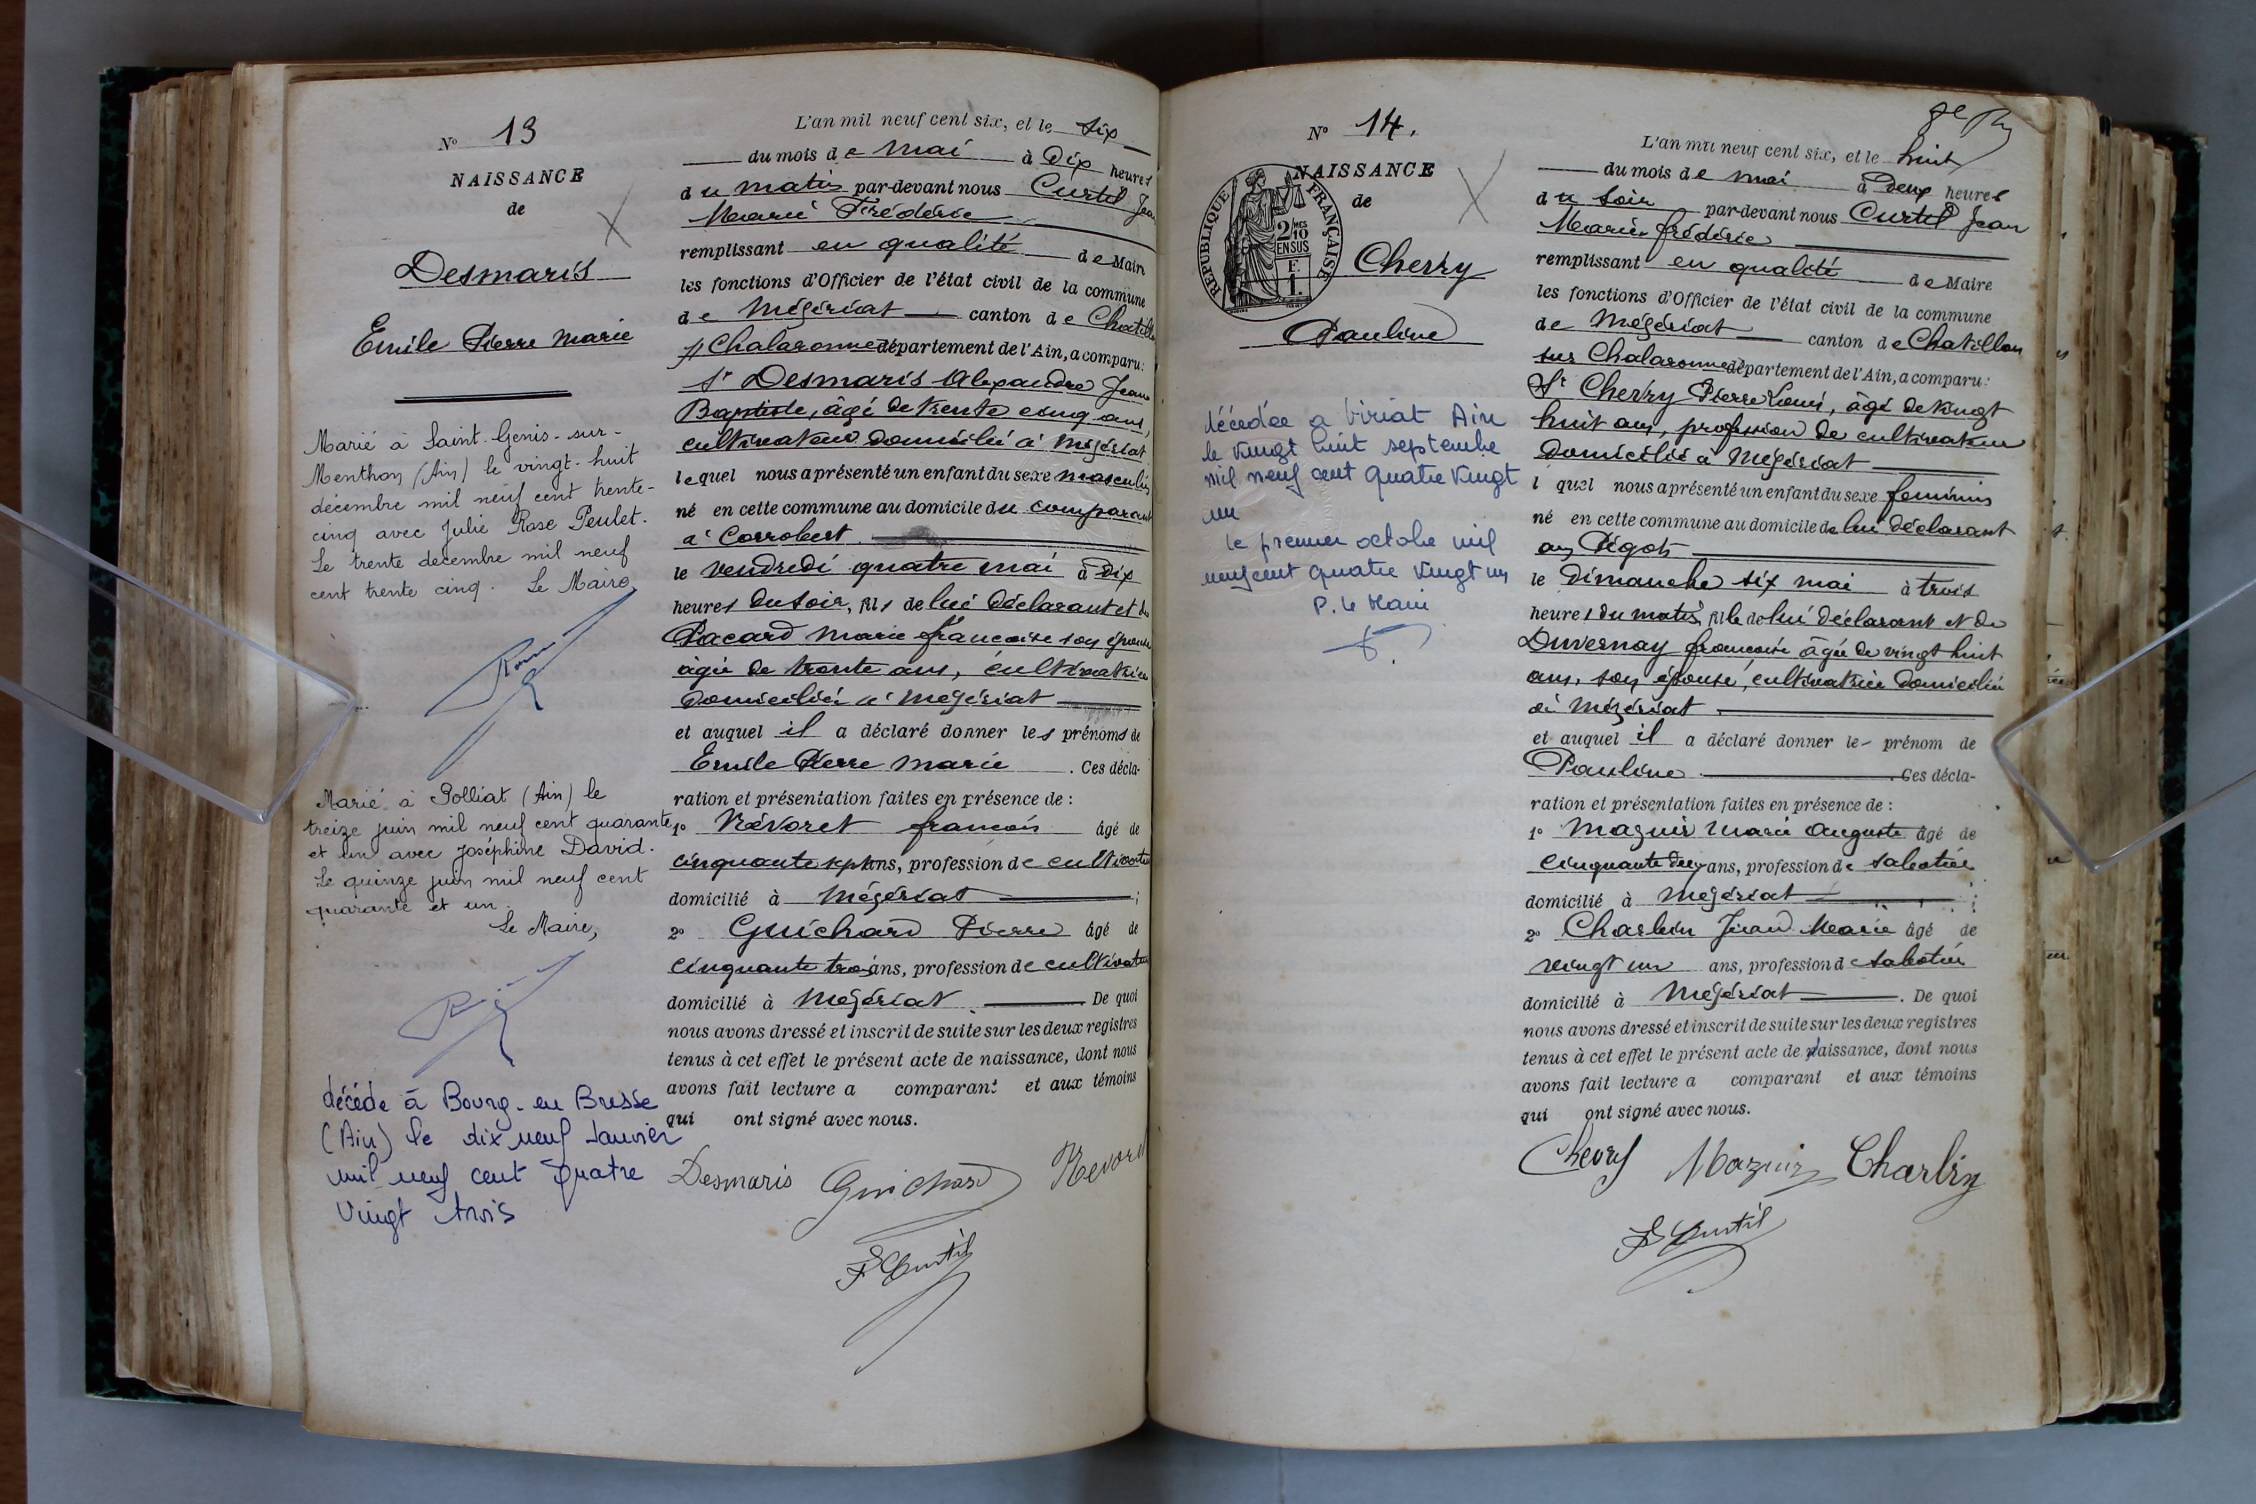 N° 13
NAISSANCE
de
Desmaris
Emile Pierre Marie
Marié à Saint-Genis-sur-
Menthon (Ain) le vingt-huit
décembre mil neuf cent trente-
cinq avec Julie Rose Peulet.
Le trente decembre mil neuf
cent trente cinq. Le Maire,
Marié à Polliat (Ain) le
treize juin mil neuf cent quarante
et un avec Joséphine David.
Le quinze juin mil neuf cent
quarante et un.
Le Maire,
décéde à Bourg-en Bresse
(Ain) le dix neuf Janvier
mil neuf cent quatre
vingt trois
L'an mil neuf cent six, et le six
du mois de Mai à Dix heures
du matin par-devant nous Curtil Jean
Marie Frédéric
remplissant en qualité de Maire
les fonctions d'Officier de l'état civil de la commune
de Mézériat canton de Chatillon
s/ Chalaronne département de l'Ain, a comparu:
Sr Desmaris Alexandre Jean
Baptiste, âgé de trente cinq ans,
cultivateur domicilié à Mézériat
lequel nous a présenté un enfant du sexe masculin
né en cette commune au domicile du comparant
à Corrobert.
le vendredi quatre mai à dix
heures du soir, fils de lui déclarant et de
Pacard Marie françoise son épouse
âgée de trente ans, cultivatrice
domiciliée à Mézériat
et auquel il a déclaré donner les prénoms de
Emile Pierre Marie. Ces décla-
ration et présentation faites en présence de :
1° Révoret françois âgé de
cinquante sept ans, profession de cultivateur
domicilié à Mézériat ;
2° Guichard Pierre âgé de
cinquante trois ans, profession de cultivateur
domicilié à Mézériat. De quoi
nous avons dressé et inscrit de suite sur les deux registres
tenus à cet effet le présent acte de naissance, dont nous
avons fait lecture a comparant et aux témoins
qui ont signé avec nous.
Desmaris Guichard Revoret
F Curtil
N° 14.
NAISSANCE
de
RÉPUBLIQUE FRANÇAISE
2/MES
10
EN SUS
F.
1.
Chevry
Pauline
décédée a Viriat Ain
le vingt huit septembre
mil neuf cent quatre vingt
un
le premier octobre mil
neuf cent quatre vingt un
P. le Maire
L'an mil neuf cent six, et le huit
du mois de mai à Deux heures
du soir par-devant nous Curtil Jean
Marie frédéric
remplissant en qualité de Maire
les fonctions d'Officier de l'état civil de la commune
de Mézériat canton de Chatillon
sur Chalaronne département de l'Ain, a comparu:
Sr Chevry Pierre Louis, âgé de vingt
huit ans, profession de cultivateur
domicilié à Mézériat
l quel nous a présenté un enfant du sexe feminin
né en cette commune au domicile de lui déclarant
le Dimanche six mai à trois
heures du matin, fille de lui déclarant et de
Duvernay françoise âgée de vingt huit
ans, son épouse, cultivatrice domiciliée
à Mézériat.
et auquel il a déclaré donner le prénom de
Pauline. Ces décla-
ration et présentation faites en présence de :
1° Mazuir Marie Auguste âgé de
cinquante deux ans, profession de sabotier
domicilié à Mézériat ;
2° Charbin Jean Marie âgé de
vingt un ans, profession de sabotier
domicilié à Mézériat. De quoi
nous avons dressé et inscrit de suite sur les deux registres
tenus à cet effet le présent acte de naissance, dont nous
avons fait lecture a comparant et aux témoins
qui ont signé avec nous.
Chevry Mazuir Charbin
F Curtil